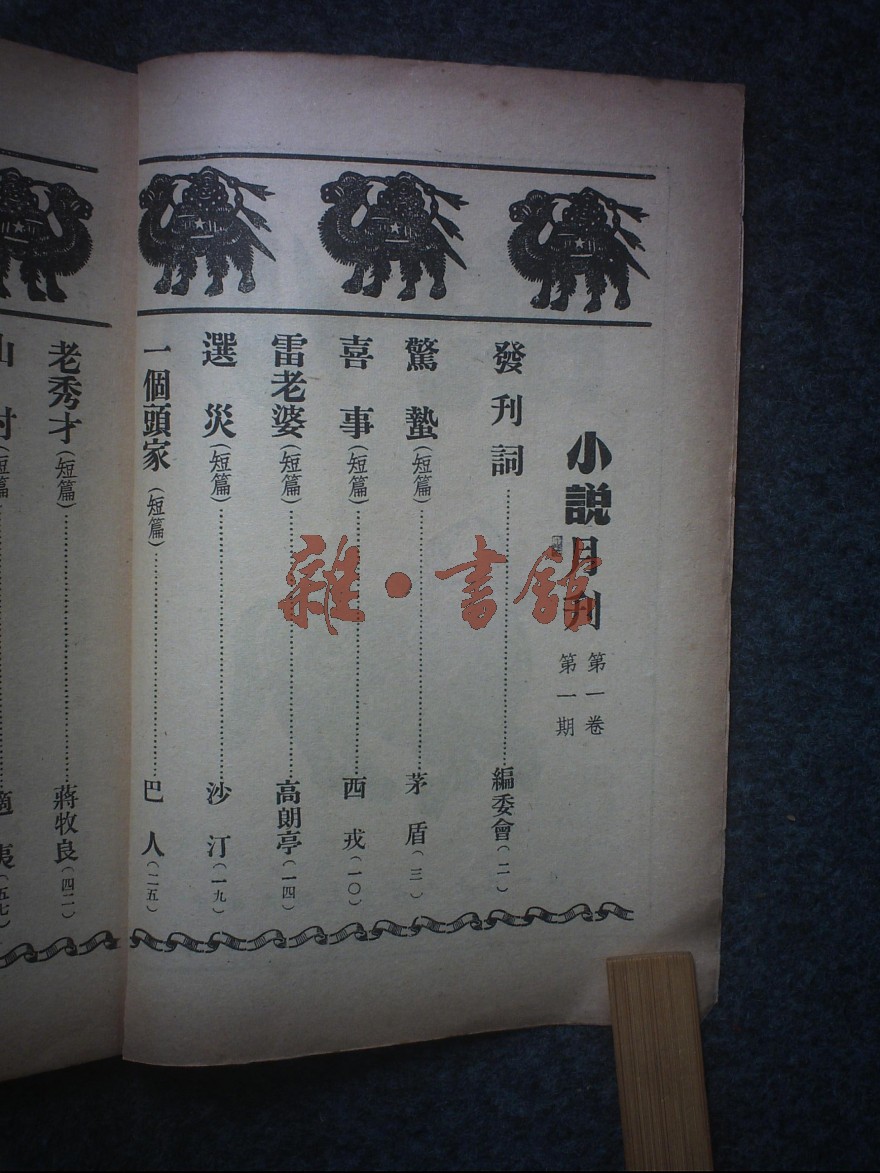 小説月刊
第一卷
第一期
發刊詞……編委會(二)
驚蟄(短篇)……茅盾(三)
喜事(短篇)……西戎(一〇)
雷老婆(短篇)……高朗亭(一四)
選災(短篇)……沙汀(一九)
一個頭家(短篇)……巴人(二五)
老秀才(短篇)……蔣牧良(四二)
山村(短篇)……適夷(五七)
雜·書館